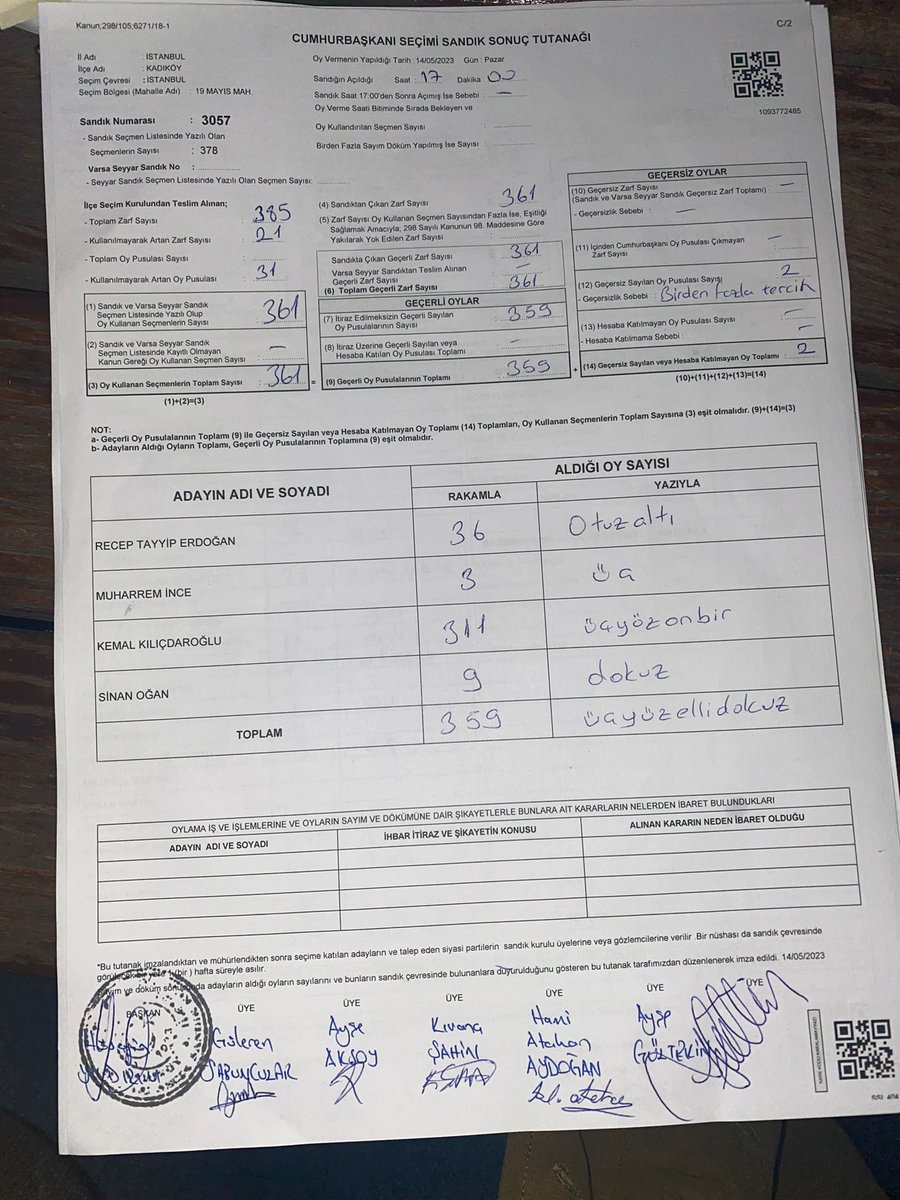 Kanun:298/105,6271/18-1
C/2
CUMHURBAŞKANI SEÇİMİ SANDIK SONUÇ TUTANAĞI
İl Adı : İSTANBUL
İlçe Adı : KADIKÖY
Seçim Çevresi : İSTANBUL
Seçim Bölgesi (Mahalle Adı) : 19 MAYIS MAH.
Oy Vermenin Yapıldığı Tarih :14/05/2023 Gün : Pazar
Sandığın Açıldığı Saat : 17 Dakika : 00
Sandık Saat 17:00'den Sonra Açımış İse Sebebi : —
Oy Verme Saati Bitiminde Sırada Bekleyen ve
Oy Kullandırılan Seçmen Sayısı :
Birden Fazla Sayım Döküm Yapılmış İse Sayısı :
1093772485
Sandık Numarası : 3057
- Sandık Seçmen Listesinde Yazılı Olan
Seçmenlerin Sayısı : 378
Varsa Seyyar Sandık No :
- Seyyar Sandık Seçmen Listesinde Yazılı Olan Seçmen Sayısı:
İlçe Seçim Kurulundan Teslim Alınan;
- Toplam Zarf Sayısı : 385
- Kullanılmayarak Artan Zarf Sayısı : 21
- Toplam Oy Pusulası Sayısı :
- Kullanılmayarak Artan Oy Pusulası : 31
(1) Sandık ve Varsa Seyyar Sandık
Seçmen Listesinde Yazılı Olup
Oy Kullanan Seçmenlerin Sayısı : 361
(2) Sandık ve Varsa Seyyar Sandık
Seçmen Listesinde Kayıtlı Olmayan
Kanun Gereği Oy Kullanan Seçmen Sayısı : —
(3) Oy Kullanan Seçmenlerin Toplam Sayısı : 361 =
(1)+(2)=(3)
(4) Sandıktan Çıkan Zarf Sayısı : 361
(5) Zarf Sayısı Oy Kullanan Seçmen Sayısından Fazla İse, Eşitliği
Sağlamak Amacıyla, 298 Sayılı Kanunun 98. Maddesine Göre
Yakılarak Yok Edilen Zarf Sayısı :
Sandıkta Çıkan Geçerli Zarf Sayısı : 361
Varsa Seyyar Sandıktan Teslim Alınan
Geçerli Zarf Sayısı :
(6) Toplam Geçerli Zarf Sayısı : 361
GEÇERLİ OYLAR
(7) İtiraz Edilmeksizin Geçerli Sayılan
Oy Pusulalarının Sayısı : 359
(8) İtiraz Üzerine Geçerli Sayılan veya
Hesaba Katılan Oy Pusulası Toplamı : —
(9) Geçerli Oy Pusulalarının Toplamı : 359 +
GEÇERSİZ OYLAR
(10) Geçersiz Zarf Sayısı : —
(Sandık ve Varsa Seyyar Sandık Geçersiz Zarf Toplamı)
- Geçersizlik Sebebi : —
(11) İçinden Cumhurbaşkanı Oy Pusulası Çıkmayan
Zarf Sayısı : —
(12) Geçersiz Sayılan Oy Pusulası Sayısı : 2
- Geçersizlik Sebebi : Birden fazla tercih
(13) Hesaba Katılmayan Oy Pusulası Sayısı : —
- Hesaba Katılmama Sebebi : —
(14) Geçersiz Sayılan veya Hesaba Katılmayan Oy Toplamı : 2
(10)+(11)+(12)+(13)=(14)
NOT:
a- Geçerli Oy Pusulalarının Toplamı (9) ile Geçersiz Sayılan veya Hesaba Katılmayan Oy Toplamı (14) Toplamları, Oy Kullanan Seçmenlerin Toplam Sayısına (3) eşit olmalıdır. (9)+(14)=(3)
b- Adayların Aldığı Oyların Toplamı, Geçerli Oy Pusulalarının Toplamına (9) eşit olmalıdır.
ADAYIN ADI VE SOYADI
ALDIĞI OY SAYISI
RAKAMLA YAZIYLA
RECEP TAYYİP ERDOĞAN 36 Otuzaltı
MUHARREM İNCE 3 üç
KEMAL KILIÇDAROĞLU 311 üçyüzonbir
SİNAN OĞAN 9 dokuz
TOPLAM 359 üçyüzellidokuz
OYLAMA İŞ VE İŞLEMLERİNE VE OYLARIN SAYIM VE DÖKÜMÜNE DAİR ŞİKAYETLERLE BUNLARA AİT KARARLARIN NELERDEN İBARET BULUNDUKLARI
ADAYIN ADI VE SOYADI İHBAR İTİRAZ VE ŞİKAYETİN KONUSU ALINAN KARARIN NEDEN İBARET OLDUĞU
*Bu tutanak imzalandıktan ve mühürlendikten sonra seçime katılan adayların ve talep eden siyasi partilerin sandık kurulu üyelerine veya gözlemcilerine verilir .Bir nüshası da sandık çevresinde
(bir ) hafta süreyle asılır.
Sayım ve döküm adayların aldığı oyların sayılarını ve bunların sandık çevresinde bulunanlara duyurulduğunu gösteren bu tutanak tarafımızdan düzenlenerek imza edildi. 14/05/2023
BAŞKAN ÜYE ÜYE ÜYE ÜYE ÜYE ÜYE
Güleren Ayşe Kıvanç Hami Ayşe
SABUNCULAR AKSOY ŞAHİN Atahan GÜLTEKİN
AYDOĞAN